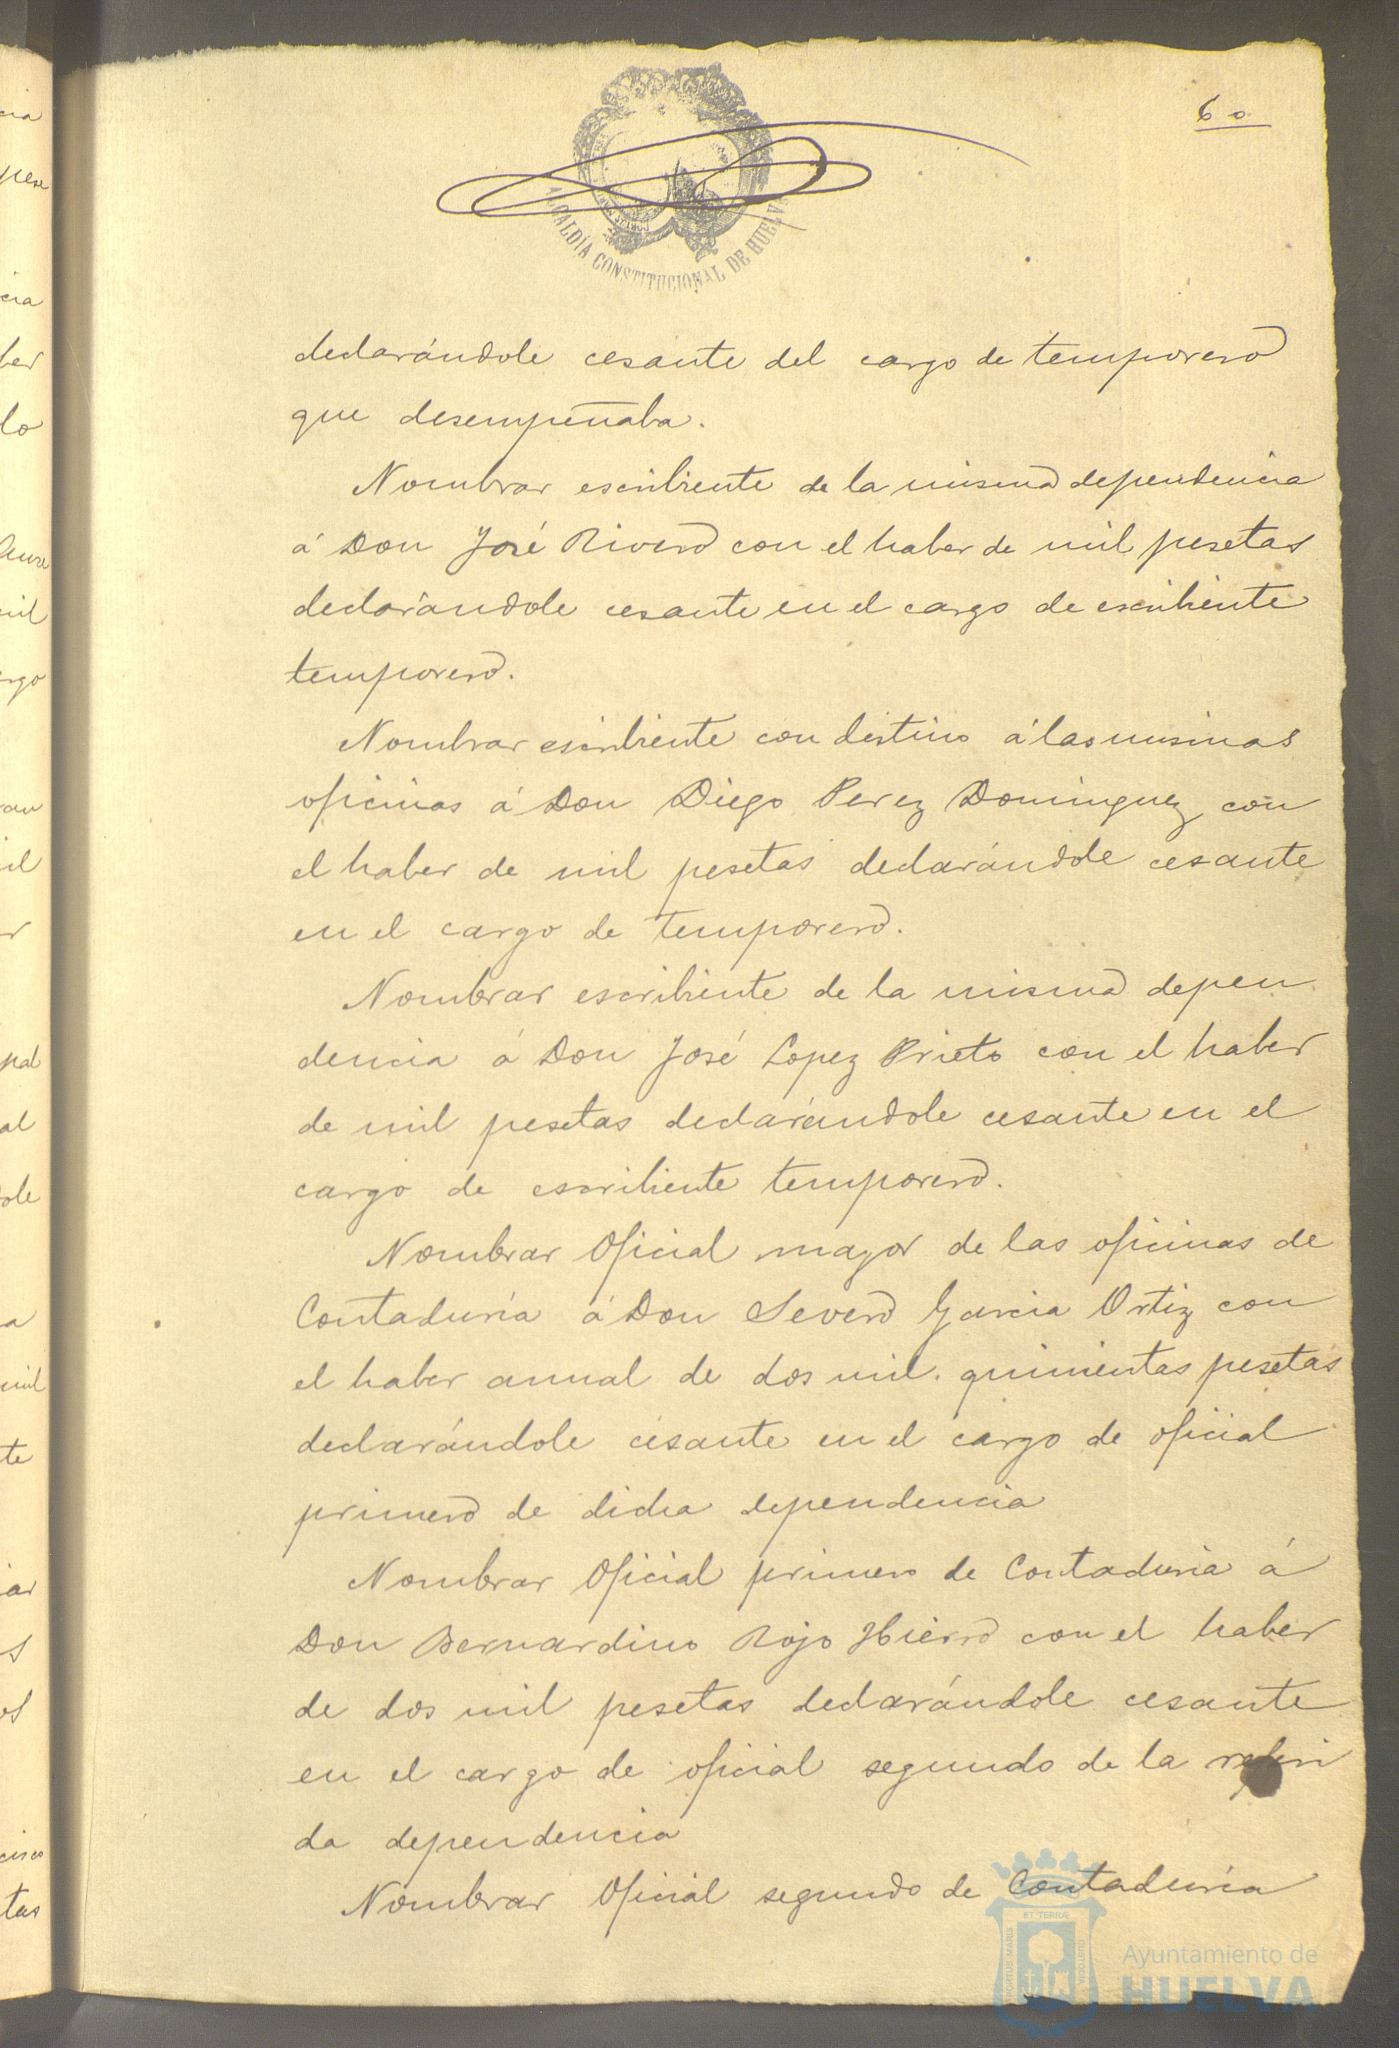 60
ALCALDÍA CONSTITUCIONAL DE HUELVA
declarándole cesante del cargo de temporero
que desempeñaba.
Nombrar escribiente de la misma dependencia
á Don José Rivero con el haber de mil pesetas
declarándole cesante en el cargo de escribiente
temporero.
Nombrar escribiente con destino á las mismas
oficinas á Don Diego Perez Dominguez con
el haber de mil pesetas declarándole cesante
en el cargo de temporero.
Nombrar escribiente de la misma depen
dencia á Don José Lopez Prieto con el haber
de mil pesetas declarándole cesante en el
cargo de escribiente temporero.
Nombrar Oficial mayor de las oficinas de
Contaduría á Don Severo Garcia Ortiz con
el haber anual de dos mil quinientas pesetas
declarándole cesante en el cargo de oficial
primero de dicha dependencia
Nombrar Oficial primero de Contaduria á
Don Bernardino Rojo Hierro con el haber
de dos mil pesetas declarándole cesante
en el cargo de oficial segundo de la referi
da dependencia
Nombrar Oficial segundo de Contaduría
Ayuntamiento de
HUELVA